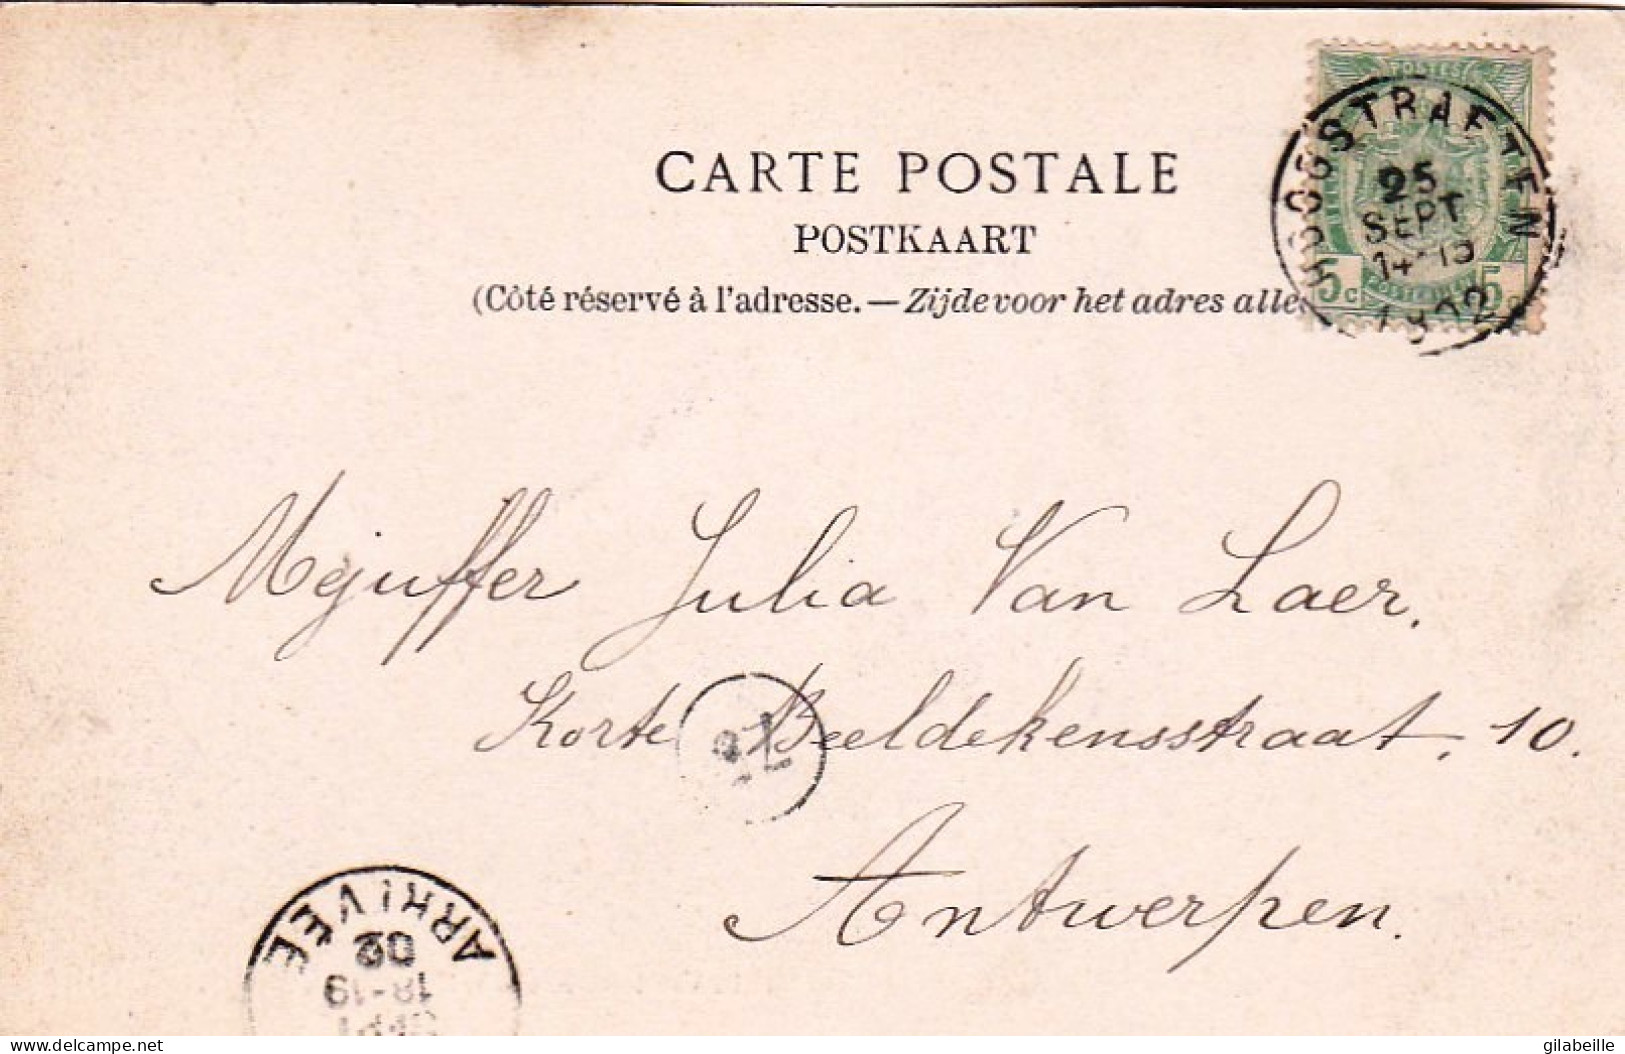 CARTE POSTALE
POSTKAART
(Côté réservé à l'adresse. — Zijde voor het adres alle
POSTES
HOOGSTRAETEN
25
SEPT
14-15
5c 5
Mejuffer Julia Van Laer.
Korte Beeldekensstraat, 10.
Antwerpen.
ARRIVÉE
02
18-19
SEPT
delcampe.net
gilabeille